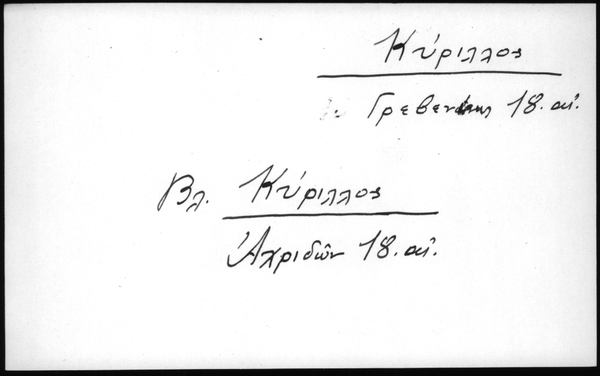 Κύριλλος
Γρεβενών 18. αἰ.
Βλ. Κύριλλος
Ἀχριδῶν 18. αἰ.